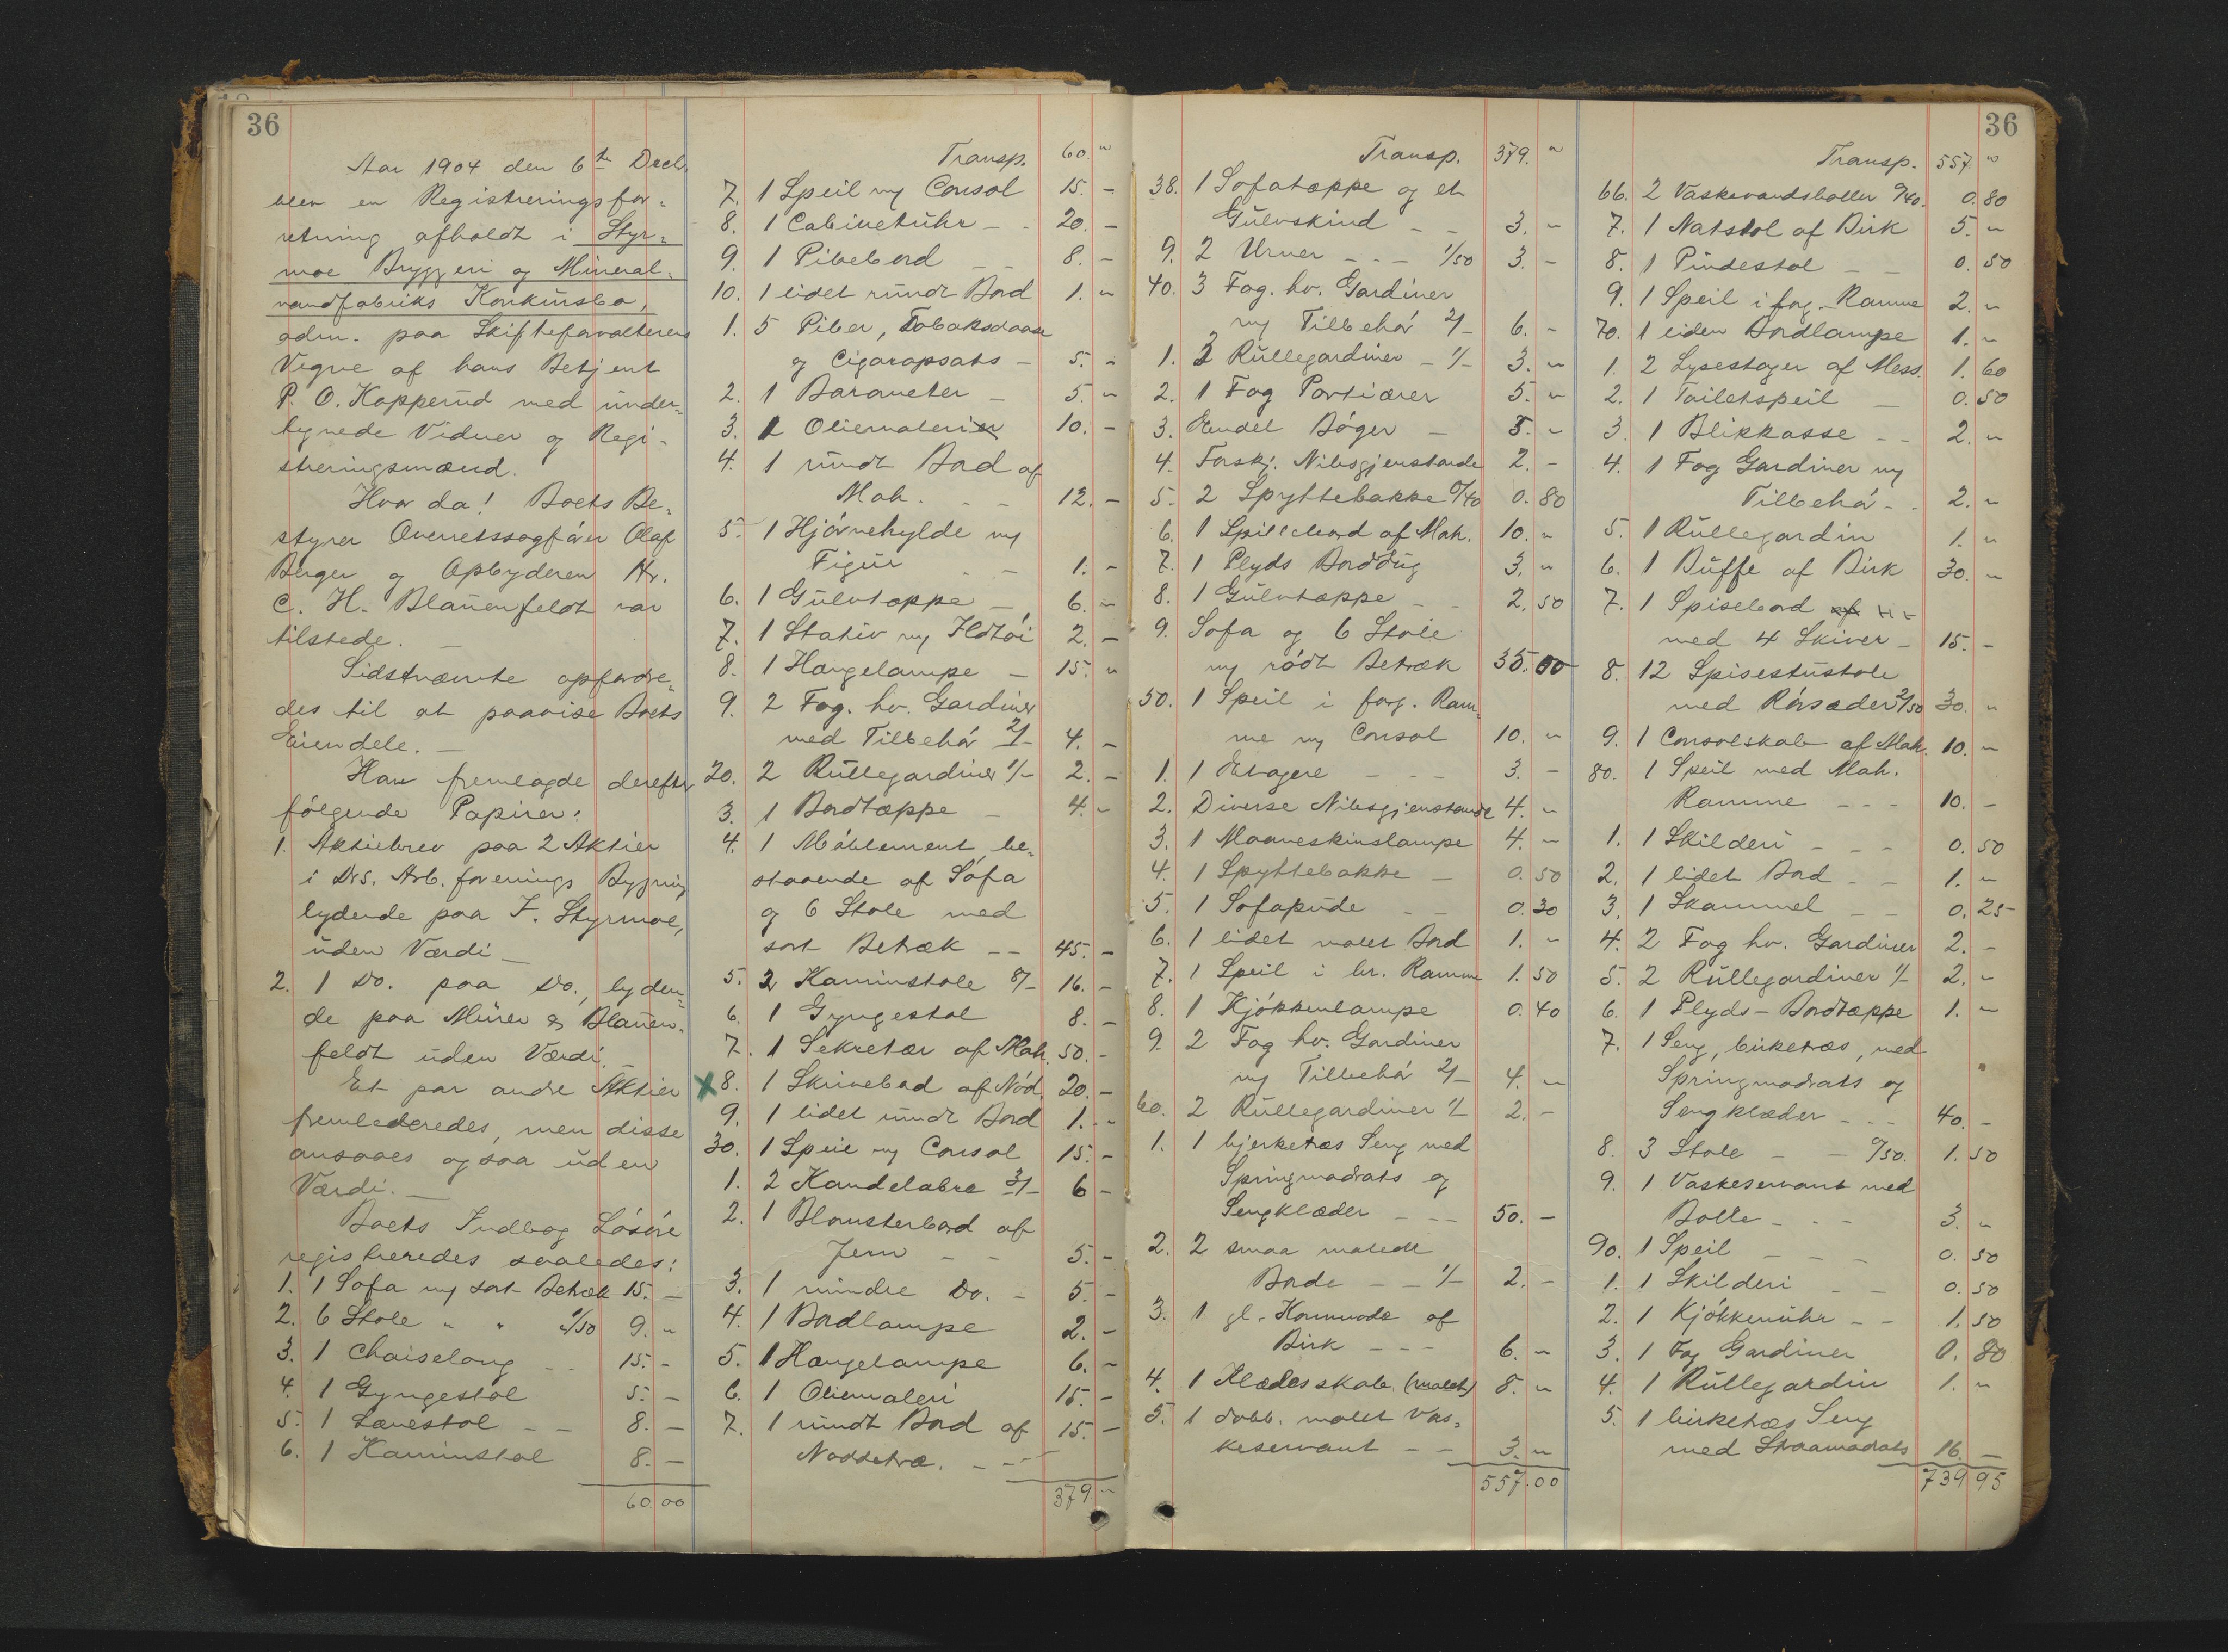 36
Aar 1904 den 6te Decbr.
blev en Registreringsfor-
retning afholdt i Styr-
moe Bryggeri og Mineral-
vandfabriks Konkursbo,
adm. paa Skifteforvalterens
Vegne af hans Betjent
P. O. Kopperud med under-
tegnede Vidner og Regi-
streringsmænd.
Hvor da! Boets Be-
styrer Overretssagfører Olaf
Berger og Opbyderen Hr.
C. H. Blauenfeldt var
tilstede. —
Sidstnævnte opfordre-
des til at paavise Boets
Eiendele. —
Han fremlagde derefter
følgende Papirer:
1. Aktiebrev paa 2 Aktier
i Drs. Arb. forenings Bygning
lydende paa F. Styrmoe,
uden Værdi —
2. 1 Do. paa Do., lyden-
de paa Meier & Blauen-
feldt uden Værdi. —
Et par andre Aktier
fremlederedes, men disse
ansaaes ogsaa uden
Værdi. —
Boets Indbog Løsøre
registreredes saaledes:
1. 1 Sofa m/ sort Betræk 15. —
2. 6 Stole " " 1/50 9. "
3. 1 Chaiselong - - 15. -
4. 1 Gyngestol 5. —
5. 1 Lænestol - - 8. —
6. 1 Kaminstol 8. —
60 00
Transp. 60. "
7. 1 Speil m/ Consol 15. -
8. 1 Cabinetuhr - - 20. -
9. 1 Pibebord - - 8. -
10. 1 lidet rundt Bord 1. "
1. 5 Piber, Tobaksdaase
og Cigaropsats - 5. -
2. 1 Barometer - 5. "
3. 1 Oliemaleri 10. -
4. 1 rundt Bord af
Mah. - - 12. -
5. 1 Hjørnehylde m/
Figur - - 1. -
6. 1 Gulvtæppe - 6. "
7. 1 Stativ m/ Ildtøi 2. -
8. 1 Hængelampe - 15. "
9. 2 Fag. hv. Gardiner
med Tilbehør 2/- 4. -
20. 2 Rullegardiner 1/- 2. -
3. 1 Bordtæppe - 4. "
4. 1 Møblement be-
staaende af Sofa
og 6 Stole med
sort Betræk - - 45. -
5. 2 Kaminstole 8/- 16. -
6. 1 Gyngestol 8. -
7. 1 Sekretær af Mah. 50. -
x 8. 1 Skrivebord af Nød. 20. -
9. 1 lidet rundt Bord 1. -
30. 1 Speil m/ Consol 15. -
1. 2 Kandelabre 3/- 6 -
2. 1 Blomsterbord af
Jern - - 5. -
3. 1 mindre Do. - 5. -
4. 1 Bordlampe 2. -
5. 1 Hængelampe 6. -
6. 1 Oliemaleri 15. -
7. 1 rundt Bord af 15. -
Nøddetræ. - -
379 "
36
Transp. 379. "
38. 1 Sofatæppe og et
Gulvskind - - 3. "
9. 2 Urner - - - 1/50 3. -
40. 3 Fag. hv. Gardiner
m/ Tilbehør 2/- 6. -
1. 3 Rullegardiner - 1/- 3. "
2. 1 Fag Portiærer 5. "
3. Endel Bøger - 5. -
4. Forskj. Nibsgjenstande 2. -
5. 2 Spyttebakke 0/40 0. 80
6. 1 Spillebord af Mah. 10. "
7. 1 Plyds Borddug 3. "
8. 1 Gulvtæppe - - 2. 50
9. Sofa og 6 Stole
m/ rødt Betræk 35. 00
50. 1 Speil i forg. Ram-
me m/ Consol 10. "
1. 1 Etagere - - - 3. -
2. Diverse Nibsgjenstande 4. "
3. 1 Maaneskinslampe 4. "
4. 1 Spyttebakke - 0. 50
5. 1 Sofapude - - 0. 30
6. 1 lidet malet Bord 1. "
7. 1 Speil i br. Ramme 1. 50
8. 1 Kjøkkenlampe 0. 40
9. 2 Fag hv. Gardiner
m/ Tilbehør 2/- 4. "
60. 2 Rullegardiner 1/- 2. -
1. 1 bjerketræs Seng med
Springmadrats og
Sengklæder - - - 50. -
2. 2 smaa malede
Borde - - 1/- 2. -
3. 1 gl. Kommode af
Birk - - - 6. "
4. 1 Klædesskab (malet) 8. "
5. 1 dobb. malet Vas-
keservant - - 3. "
557.00
Transp. 557. "
66. 2 Vaskevandsboller 0/40. 0. 80
7. 1 Natstol af Birk 5. "
8. 1 Pindestol - - 0. 50
9. 1 Speil i forg. Ramme 2. "
70. 1 liden Bordlampe 1. "
1. 2 Lysestager af Mess. 1. 60
2. 1 Toiletspeil - 0. 50
3. 1 Blikkasse - - 2. "
4. 1 Fag Gardiner m/
Tilbehør - - 2. "
5. 1 Rullegardin 1. "
6. 1 Buffe af Birk 30. "
7. 1 Spisebord
med 4 Skiver - 15. -
8. 12 Spisestustole
med Rørsæder 2/50 30. "
9. 1 Consolskab af Mah. 10. "
80. 1 Speil med Mah.
Ramme - - - 10. -
1. 1 Skilderi - - - 0. 50
2. 1 lidet Bord - - 1. "
3. 1 Skammel - - 0. 25
4. 2 Fag hv. Gardiner 2. -
5. 2 Rullegardiner 1/- 2. "
6. 1 Plyds-Bordtæppe 1. "
7. 1 Seng, birketræs, med
Springmadrats og
Sengklæder - - - 40. -
8. 3 Stole - - 0/50. 1. 50
9. 1 Vaskeservant med
Bolle - - - 3. "
90. 1 Speil - - - 0. 50
1. 1 Skilderi - - 0. 50
2. 1 Kjøkkenuhr - - 1. 50
3. 1 Fag Gardiner 0. 80
4. 1 Rullegardin 1. "
5. 1 birketræs Seng
med Straamadrats 16. -
739 95